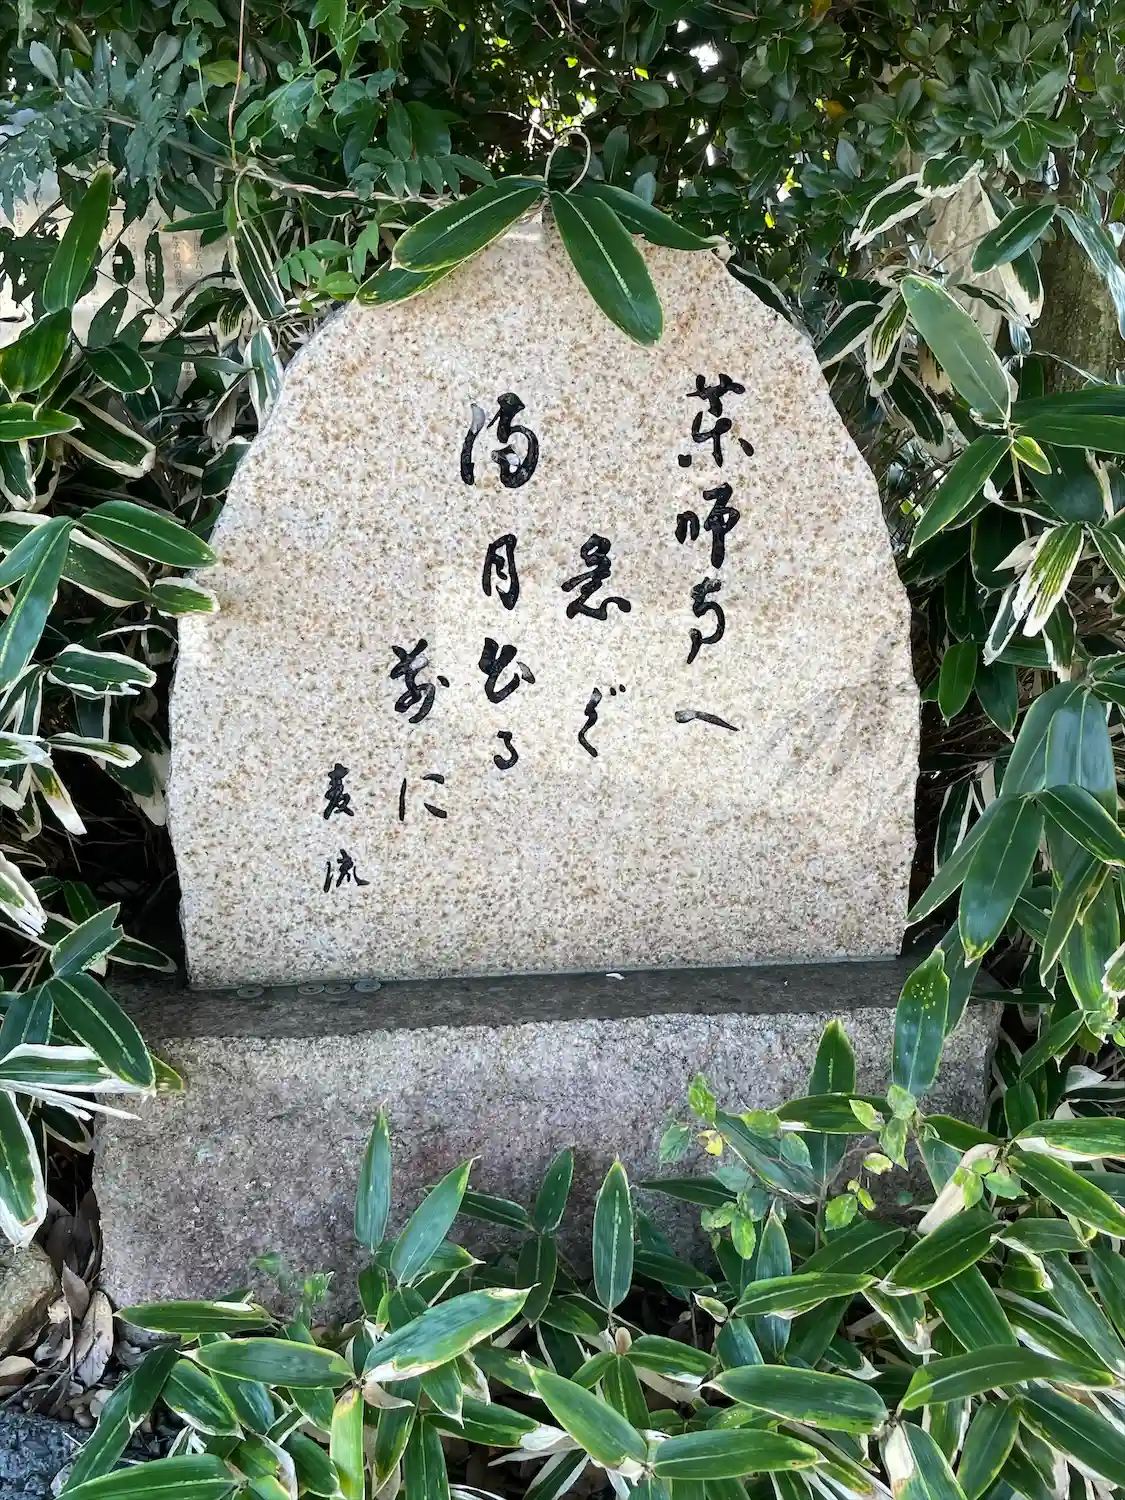 薬師寺へ
急ぐ
満月出る
前に
麦流